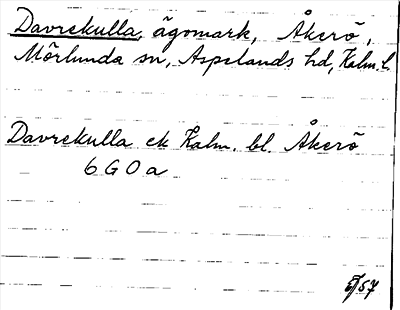 Davrekulla, ägomark, Åkerö,
Mörlunda sn, Aspelands hd, Kalm. l.
Davrekulla ek Kalm. bl. Åkerö
6 G 0 a
/57